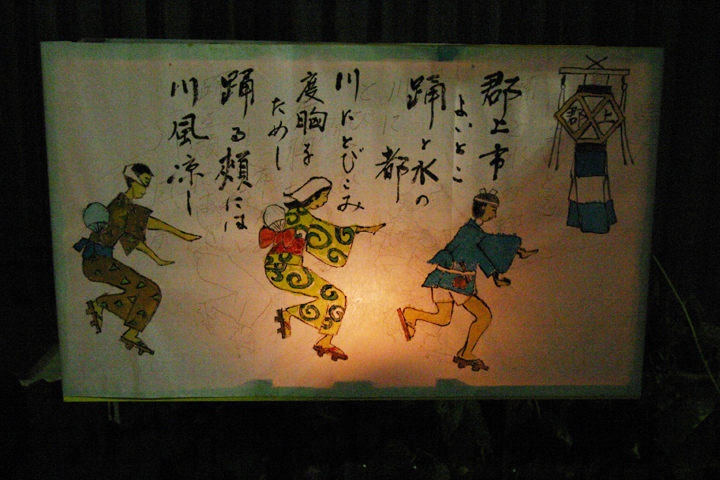 郡上
郡上市
よいとこ
踊と水の
都
川にとびこみ
度胸を
ためし
踊る頬には
川風涼し